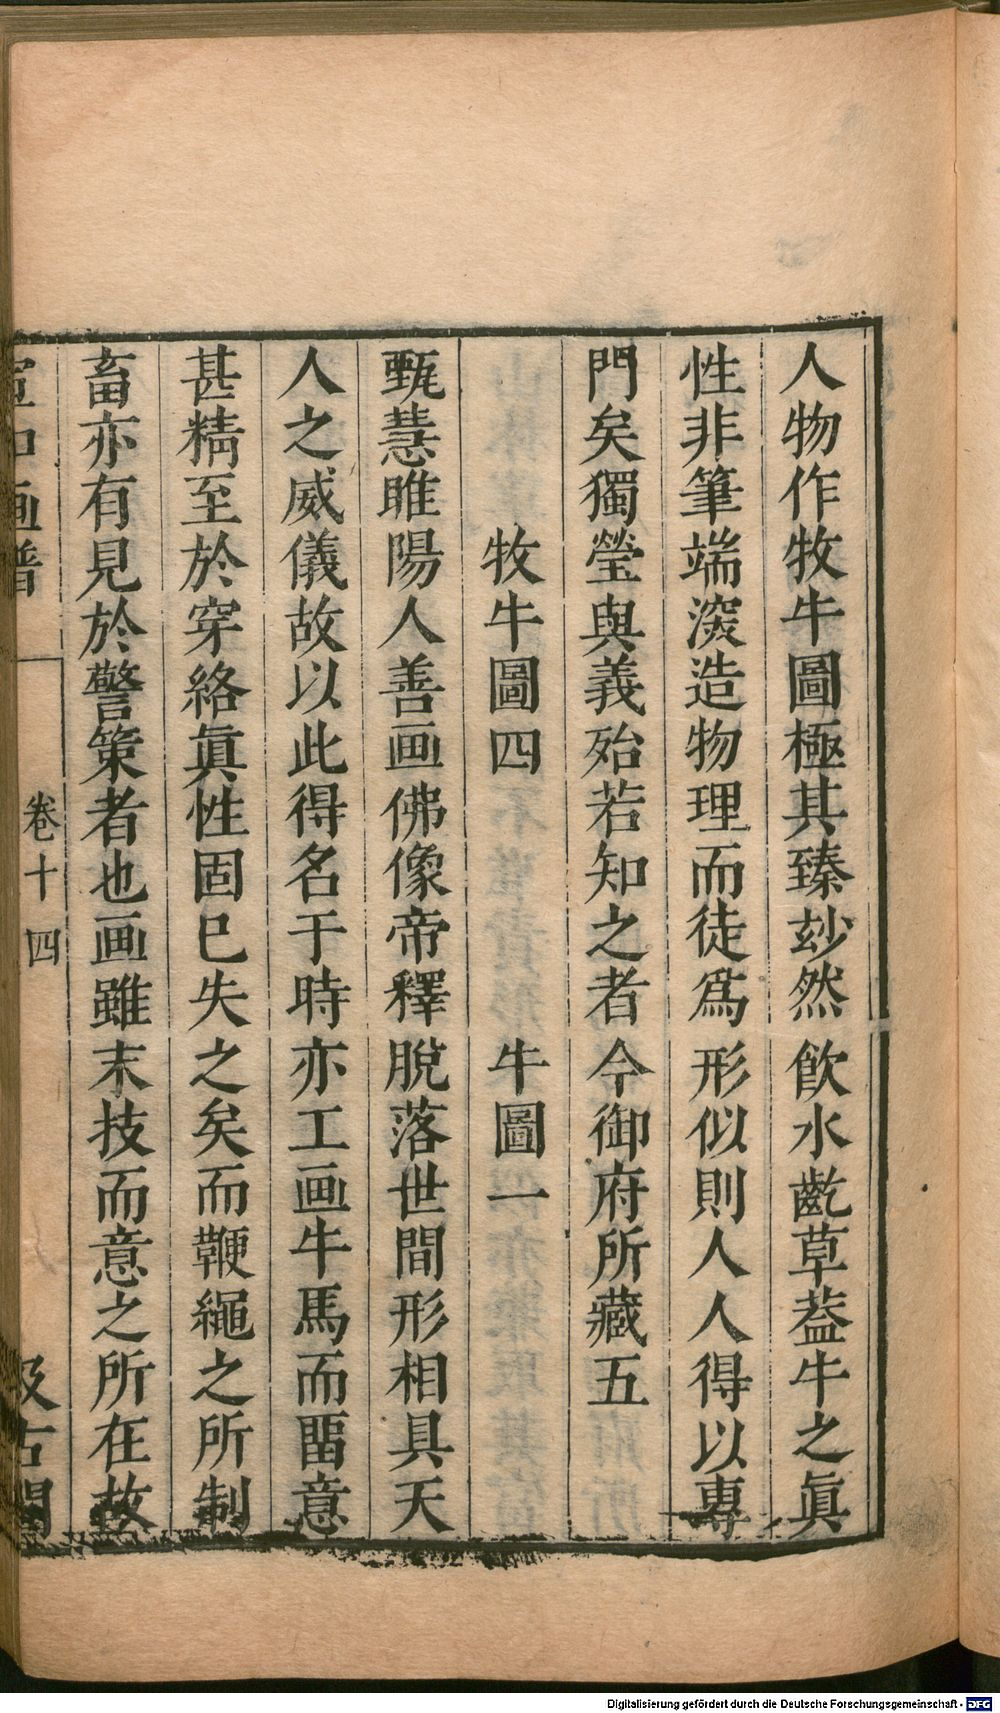 人物作牧牛圖極其臻玅然飲水齕草葢牛之眞
性非筆端深造物理而徒爲形似則人人得以專
門矣獨瑩與義殆若知之者今御府所藏五
牧牛圖四 牛圖一
甄慧睢陽人善画佛像帝釋脫落世間形相具天
人之威儀故以此得名于時亦工画牛馬而畱意
甚精至於穿絡眞性固已失之矣而鞭繩之所制
畜亦有見於警策者也画雖末技而意之所在故
宣和画譜 卷十四 汲古閣
Digitalisierung gefördert durch die Deutsche Forschungsgemeinschaft - DFG